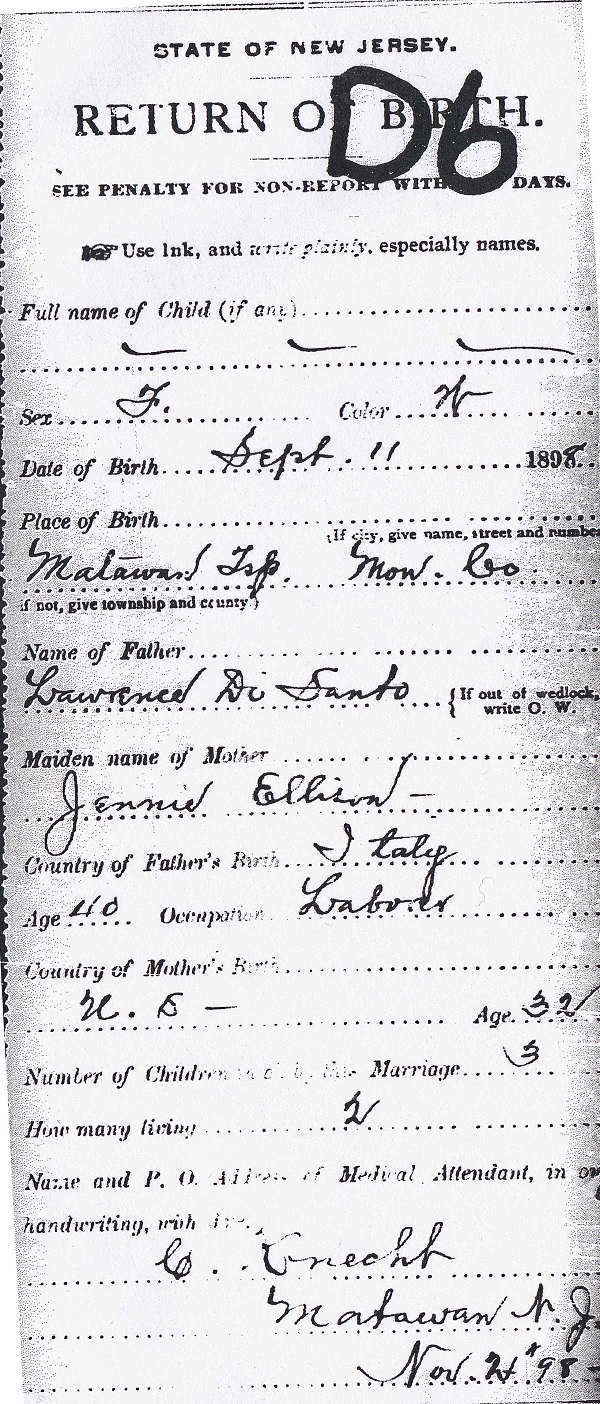 STATE OF NEW JERSEY.
RETURN OF BIRTH.
D6
SEE PENALTY FOR NON-REPORT WITH DAYS.
Use Ink, and write plainly, especially names.
Full name of Child (if any)
Sex F. Color W
Date of Birth Sept. 11 1898.
Place of Birth
(If city, give name, street and number
Matawan Tsp. Mon. Co.
if not, give township and county.)
Name of Father
Lawrence Di Santo {If out of wedlock, write O. W.
Maiden name of Mother
Jennie Ellison —
Country of Father's Birth Italy
Age 40 Occupation Laborer
Country of Mother's Birth
U. S — Age. 32
Number of Children in all by this Marriage 3
How many living 2
Name and P. O. Address of Medical Attendant, in
handwriting, with
C. Knecht
Matawan N. J.
Nov. '98 —